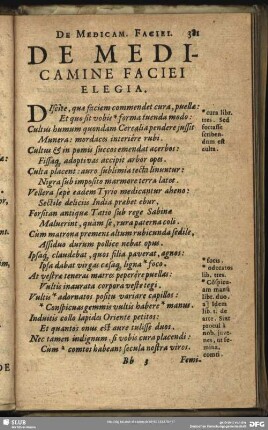 DE MEDICAM. FACIEI. 381
DE MEDI-
CAMINE FACIEI
ELEGIA.
DIscite, quæ faciem commendet cura, puellæ:
Et quo sit vobis * forma tuenda modo:
Cultus humum quondam Cerealia pendere jussit
Munera: mordaces interiêre rubi.
Cultus & in pomis succos emendat acerbos:
Fissaq, adoptivas accipit arbor opes.
Culta placent: auro sublimia tecta linuntur:
Nigra sub imposito marmore terra latet.
Vellera sæpe eadem Tyrio medicantur aheno:
Sectile deliciis India præbet ebur.
Forsitan antiquæ Tatio sub rege Sabinæ
Maluerint, quàm se, rura paterna coli:
Cùm matrona premens altum rubicunda sedile,
Assiduo durum pollice nebat opus.
Ipsaq, claudebat, quos filia paverat, agnos:
Ipsa dabat virgas cæsaq, ligna * foco.
At vestræ teneras matres peperêre puellas:
Vultis inaurata corpora veste tegi.
Vultis * adornatos positu variare capillos:
* Conspicuas gemmis vultis habere * manus:
Induitis collo lapides Oriente petitos:
Et quantos onus est aure tulisse duos.
Nec tamen indignum, si vobis cura placendi:
Cùm * comtos habeant secula nostra viros.
Bb 3 Femi-
* cura libr.
trei. Sed
fortasse
scriben-
dum est
culta.
* focis.
* odoratos
lib. trei.
* Cōspicu-
am manū
libr. duo.